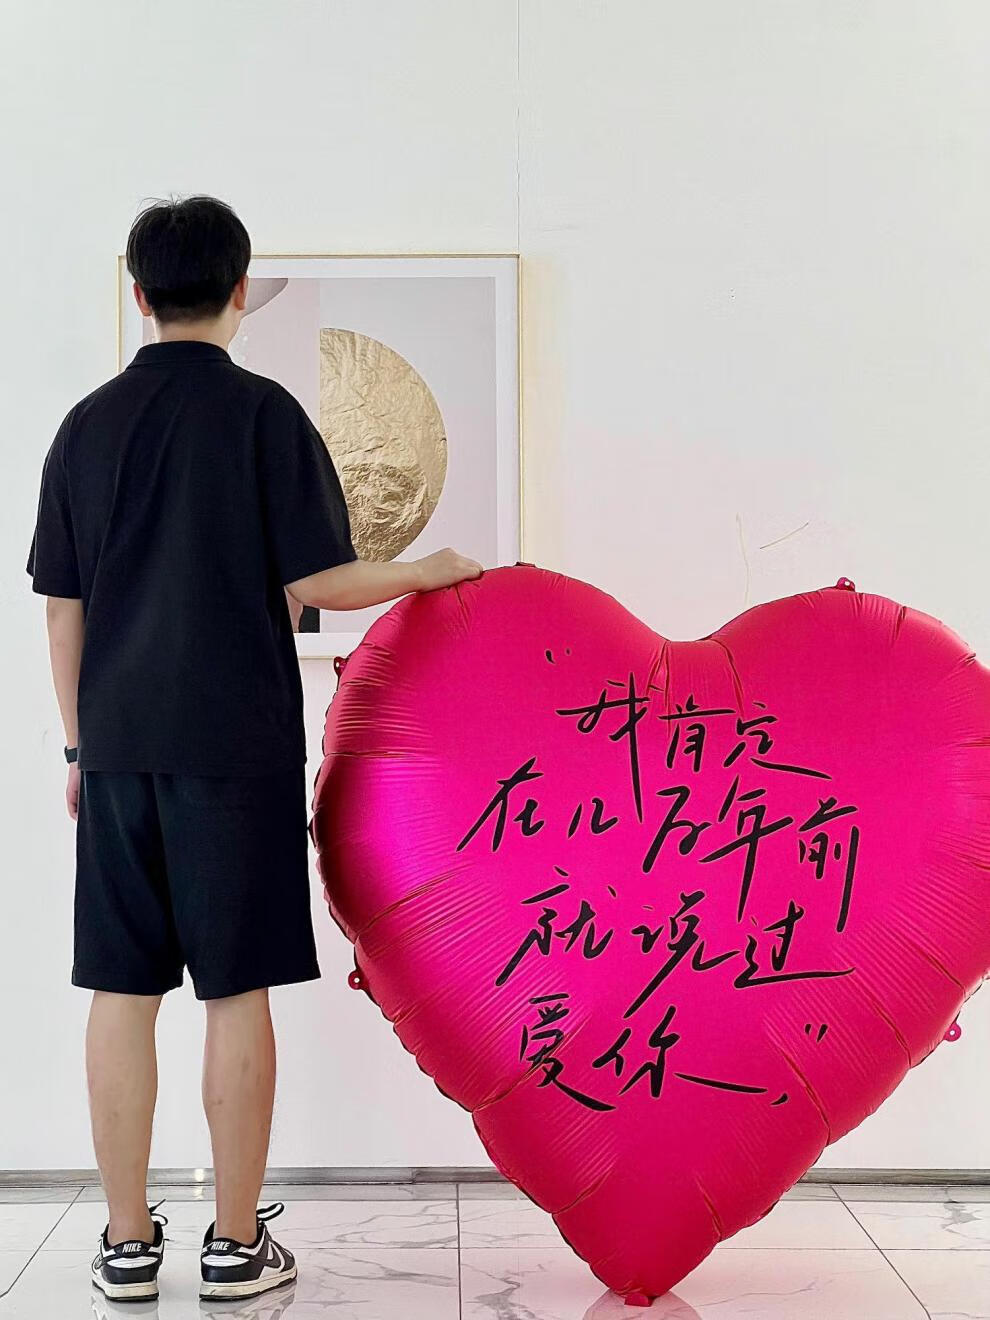 “我肯定
在几百年前
就说过
爱你,”
NIKE
NIKE